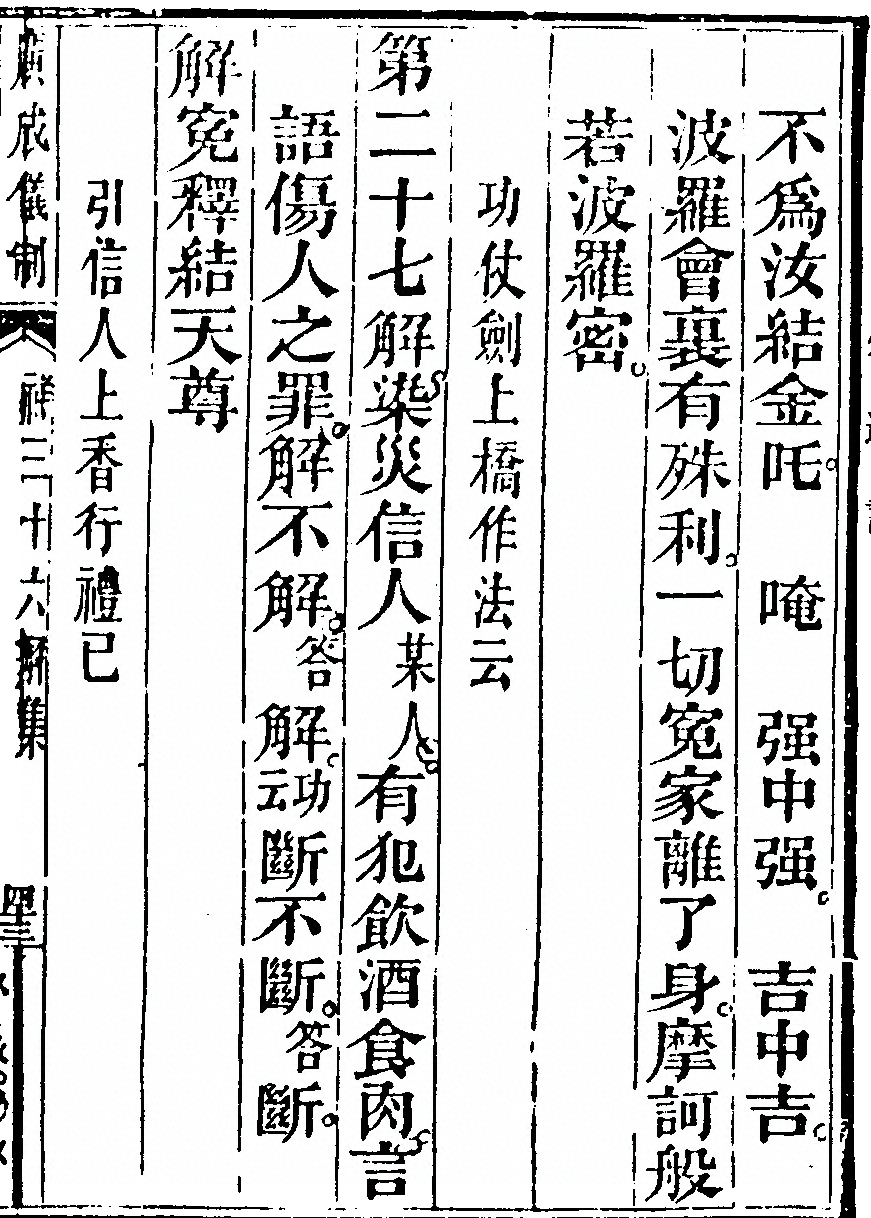 不爲汝結金吒。唵　强中强。吉中吉。
波羅會裏有殊利。一切寃家離了身。摩訶般
若波羅密。
功仗劍上橋作法云
第二十七解染災信人某人。有犯飲酒食肉。言
語傷人之罪。解不解。答解。功云斷不斷。答斷。
解寃釋結天尊
引信人上香行禮已
廣成儀制　三十六解集